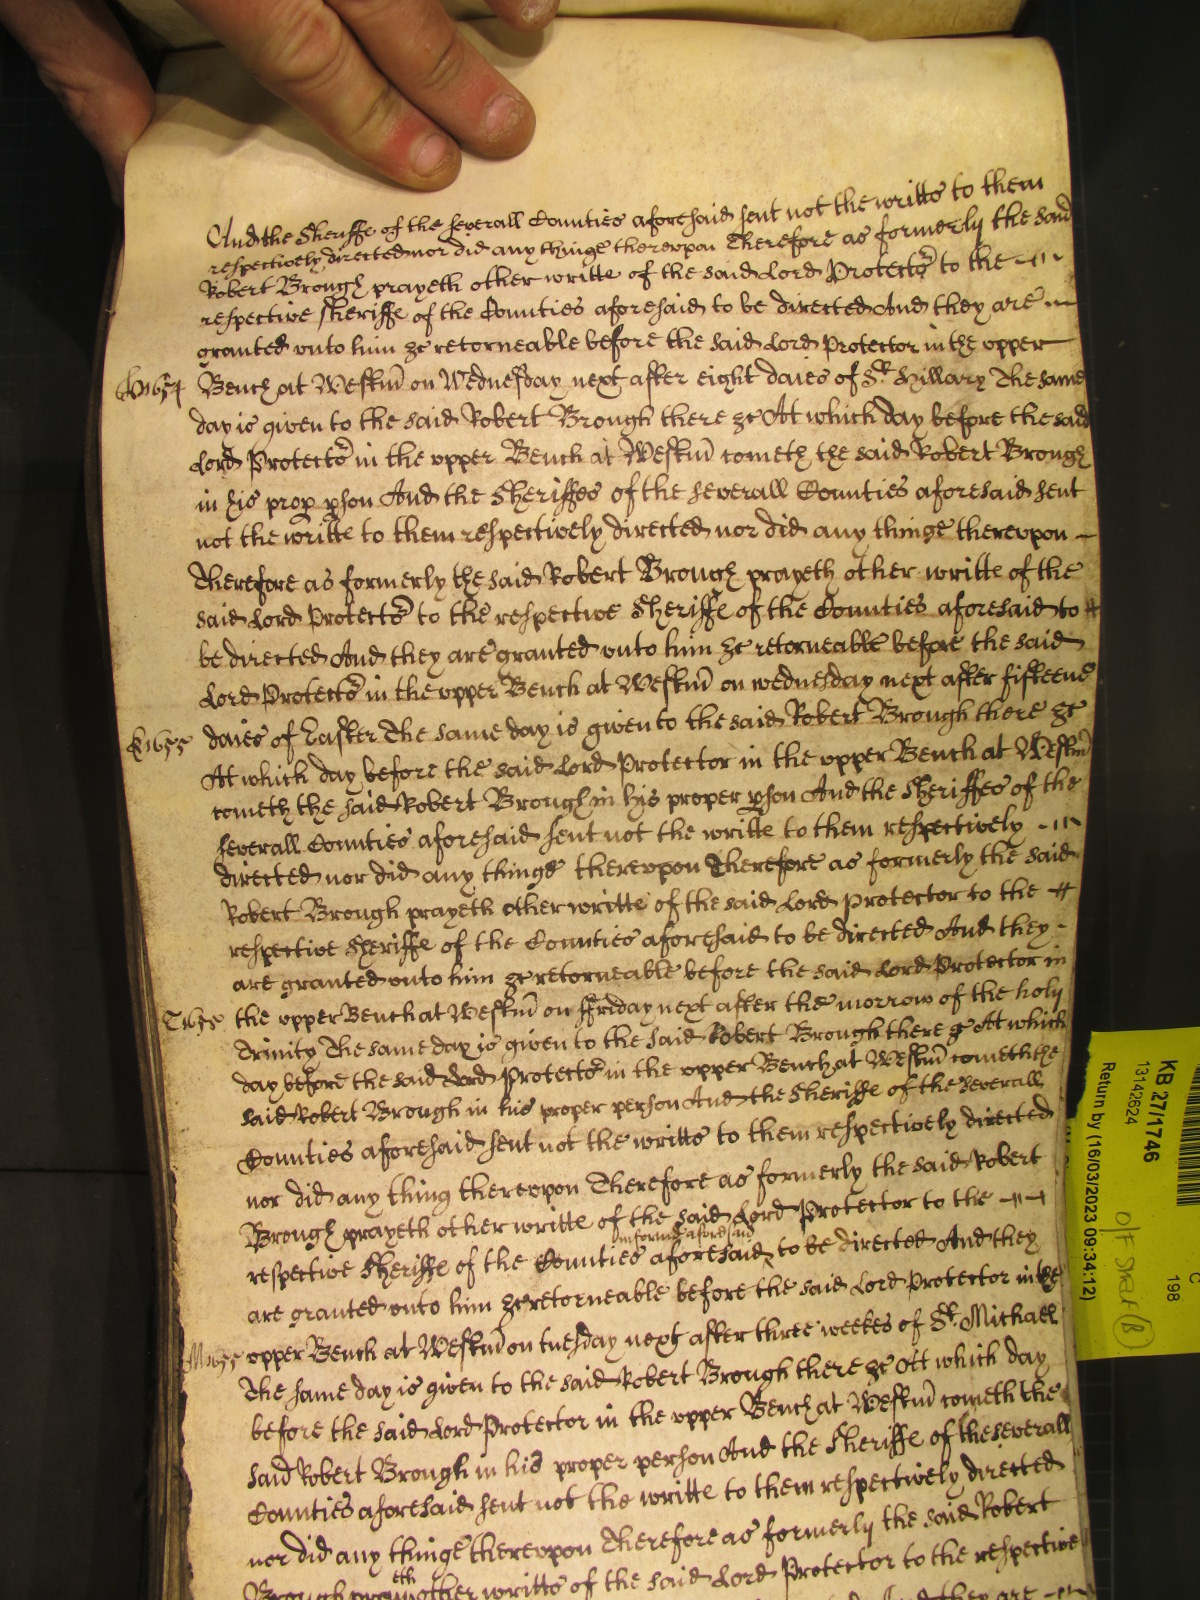 And the Sheriffe of the severall Counties aforesaid sent not the writts to them
respectively directed nor did any thinge therevpon Therefore as formerly the said
Robert Brough prayeth other writte of the said Lord Protector to the
respective Sheriffe of the Counties aforesaid to be directed And they are
granted vnto him &c retorneable before the said Lord Protector in the vpper
H 1654 Bench at Westm̄ on Wednesday next after eight daies of St. Hillary The same
day is given to the said Robert Brough there &c At which day before the said
Lord Protector in the vpper Bench at Westm̄ cometh the said Robert Brough
in his prop p̱son And the Sheriffes of the severall Counties aforesaid sent
not the writte to them respectively directed nor did any thinge therevpon
Therefore as formerly the said Robert Brough prayeth other writte of the
said Lord Protector to the respective Sheriffe of the Counties aforesaid to
be directed And they are granted vnto him &c retorneable before the said
Lord Protector in the vpper Bench at Westm̄ on wednesday next after fifteene
E 1655 daies of Easter The same day is given to the said Robert Brough there &c
At which day before the said Lord Protector in the vpper Bench at Westm̄
cometh the said Robert Brough in his proper p̱son And the Sheriffes of the
severall Counties aforesaid sent not the writte to them respectively
directed nor did any thinge therevpon Therefore as formerly the said
Robert Brough prayeth other writte of the said Lord Protector to the
respective Sheriffe of the Counties aforesaid to be directed And they
are granted vnto him &c retorneable before the said Lord Protector in
T 1655 the vpper Bench at Westm̄ on ffriday next after the morrow of the holy
Trinity The same day is given to the said Robert Brough there &c At which
day before the said Lord Protector in the vpper Bench at Westm̄ cometh the
said Robert Brough in his proper person And the Sheriffe of the severall
Counties aforesaid sent not the writts to them respectively directed
nor did any thing therevpon Therefore as formerly the said Robert
Brough prayeth other writte of the said Lord Protector to the
in forme aforesaid
respective Sheriffe of the Counties aforesaid to be directed And they
are granted vnto him &c retorneable before the said Lord Protector in the
M 1655 vpper Bench at Westm̄ on tuesday next after three weekes of St. Michael
The same day is given to the said Robert Brough there &c Att which day
before the said Lord Protector in the vpper Bench at Westm̄ cometh the
said Robert Brough in his proper person And the Sheriffe of the severall
Counties aforesaid sent not the writte to them respectively directed
nor did any thinge therevpon Therefore as formerly the said Robert
eth
Brough other writts of the said Lord Protector to the respective
And they are
KB 27/1746
13142624
Return by (16/03/2023 09:34:12)
C
198